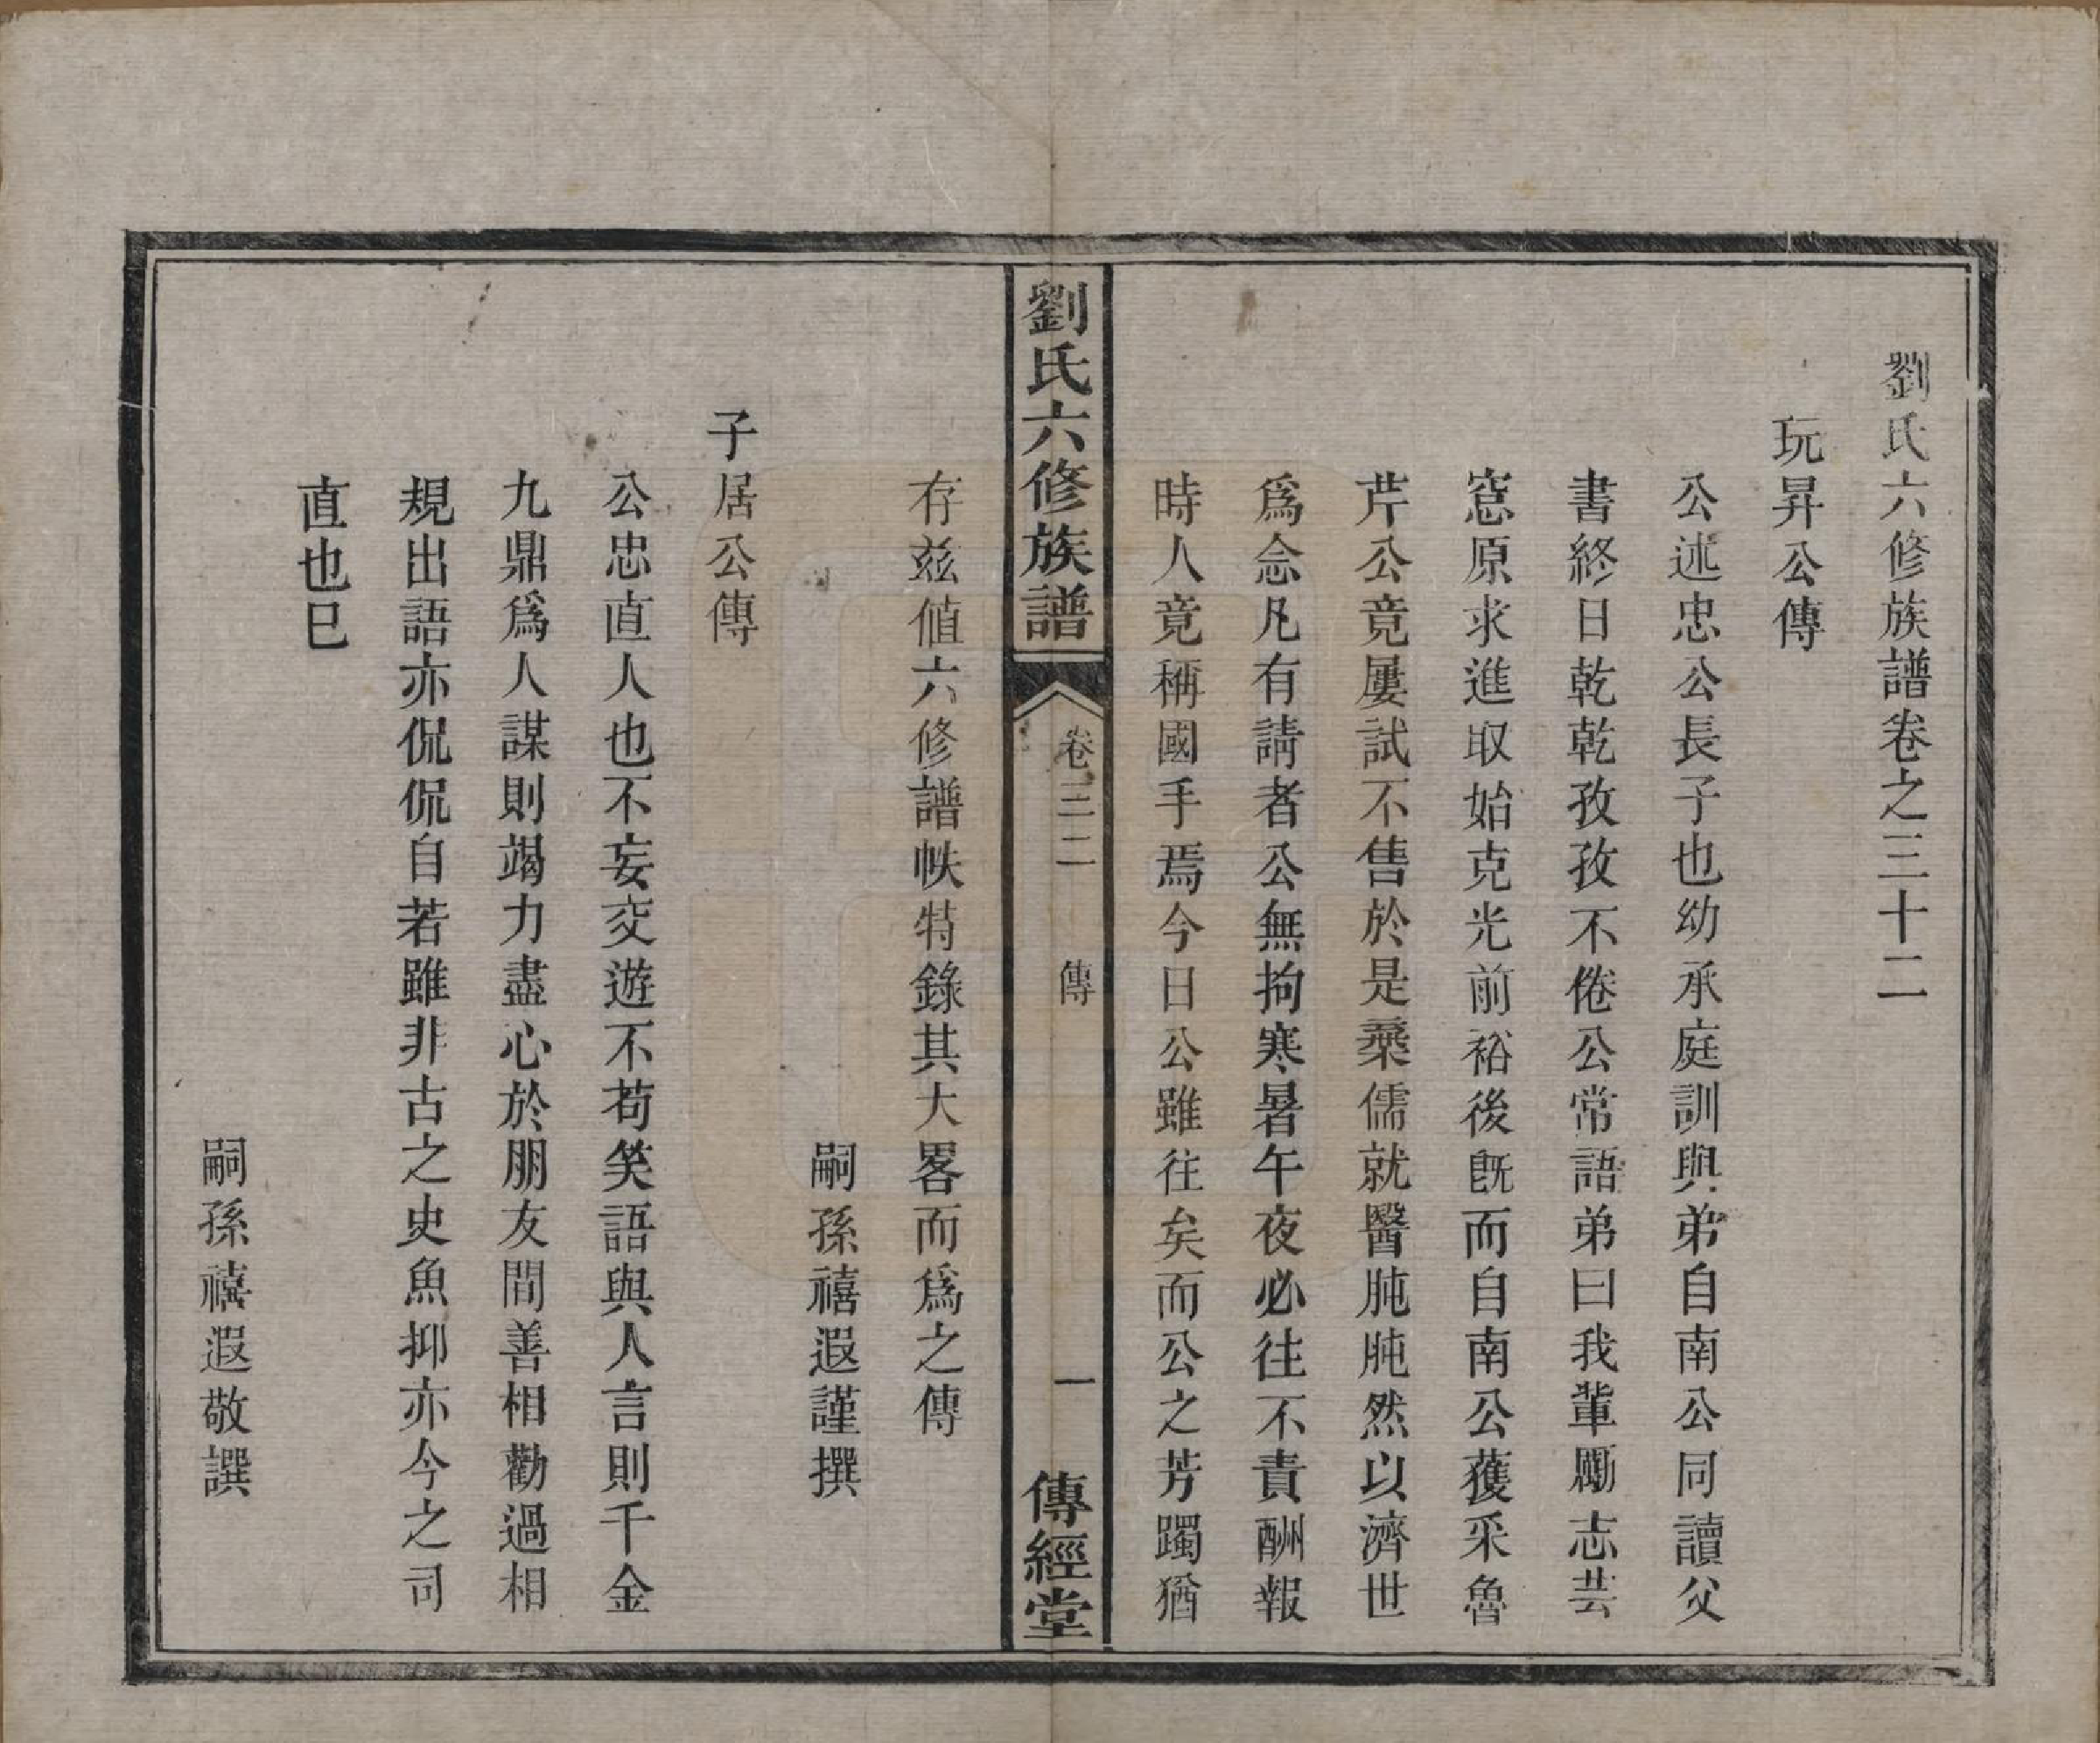 劉氏六修族譜卷之三十二
玩昇公傳
公述忠公長子也幼承庭訓與弟自南公同讀父
書終日乾乾孜孜不倦公常語弟曰我輩勵志芸
窻原求進取始克光前裕後旣而自南公獲采魯
芹公竟屢試不售於是棄儒就醫肫肫然以濟世
爲念凡有請者公無拘寒暑午夜必往不責酬報
時人竟稱國手焉今日公雖往矣而公之芳躅猶
劉氏六修族譜
卷三二
傳
一
傳經堂
存兹值六修譜帙特錄其大畧而爲之傳
嗣孫禧遐謹撰
子居公傳
公忠直人也不妄交遊不苟笑語與人言則千金
九鼎爲人謀則竭力盡心於朋友間善相勸過相
規出語亦侃侃自若雖非古之史魚抑亦今之司
直也巳
嗣孫禧遐敬譔